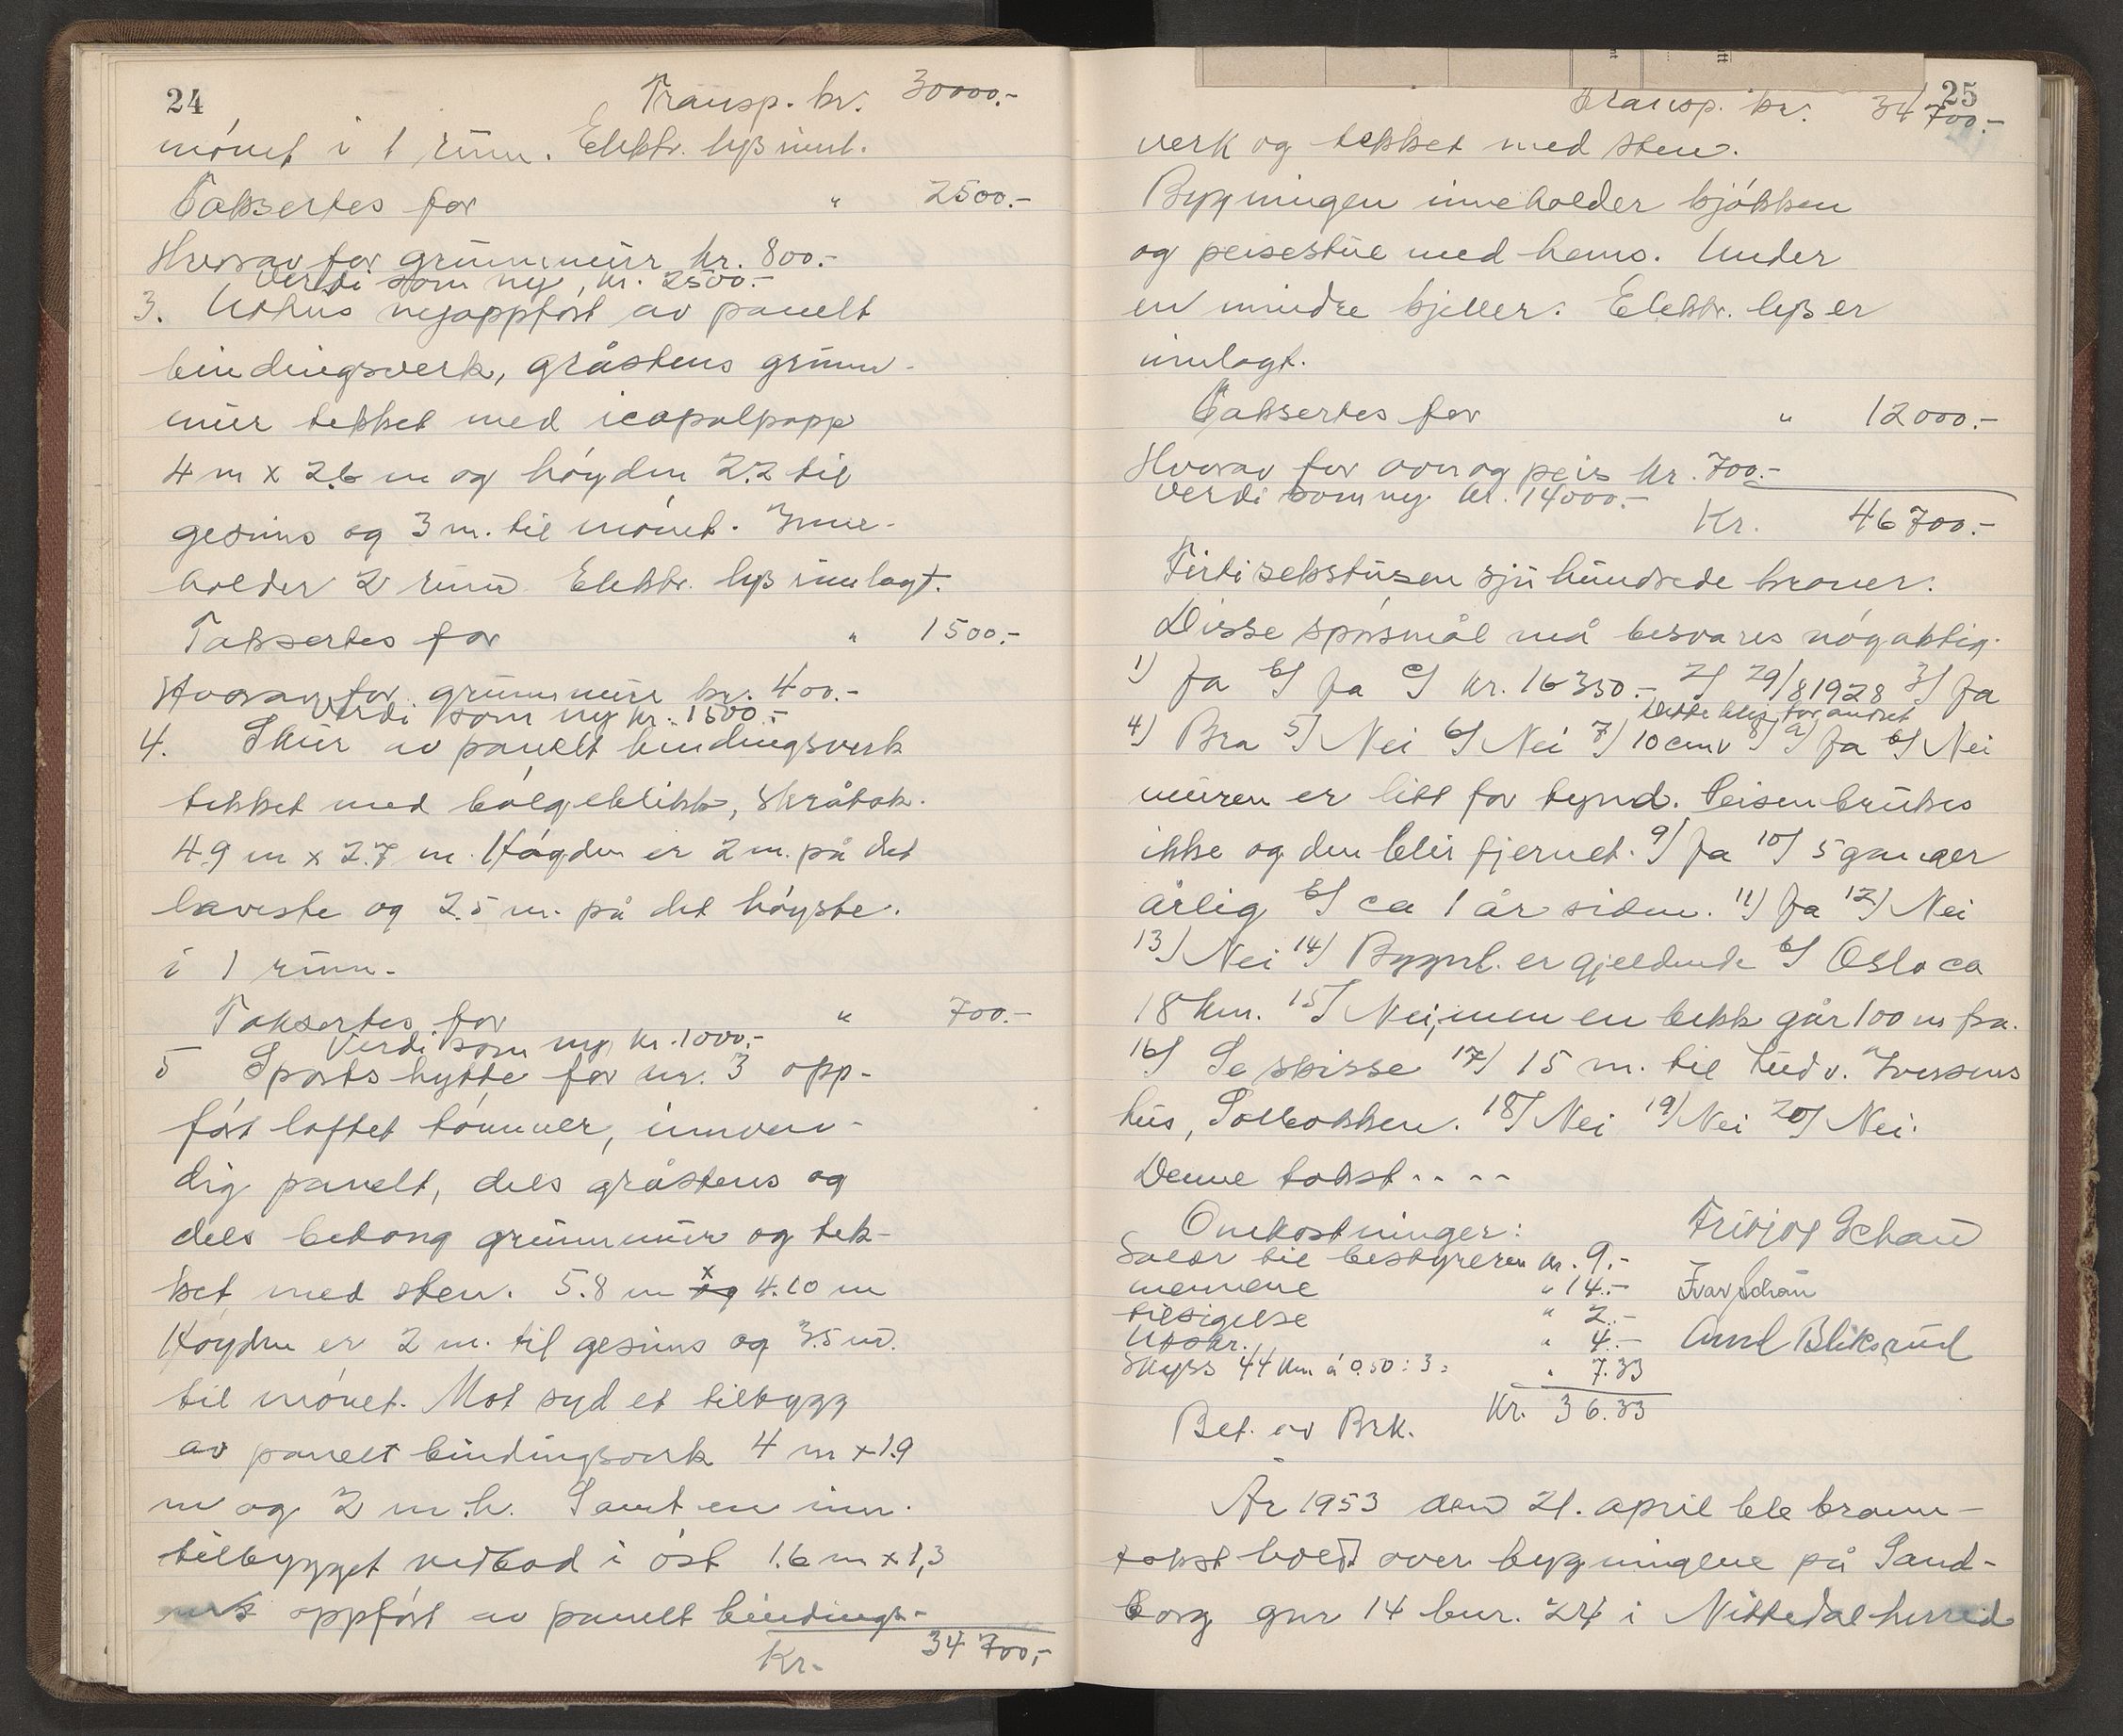 24
Transp. kr. 30000.-
mónet i 1 rum. Elektr. lys innl.
Taksertes for " 2500.-
Hvorav for grunnmur kr. 800.-
Verdi som ny, kr. 2500.-
3. Uthus nyoppført av panelt
bindingsverk, gråstens grunn-
mur tekket med icopalpapp
4 m x 2.6 m og høyden 2.2 til
gesims og 3 m. til mønet. Inne-
holder 2 rum Elektr. lys innlagt.
Taksertes for " 1500.-
Hvorav for grunnmur kr. 400.-
Verdi som ny kr. 1500.-
4. Skur av panelt bindingsverk
tekket med bølgeblikk, skråtak.
4.9 m x 2.7 m. Høyden er 2 m. på det
laveste og 2.5 m. på det høyste.
i 1 rum.
Taksertes for " 700.-
Verdi som ny kr. 1000.-
5 Sportshytte for nr. 3 opp-
ført laftet tømmer, innven-
dig panelt, dels gråstens og
dels betong grunnmur og tek-
ket med sten. 5.8 m x 4.10 m
Høyden er 2 m. til gesims og 3.5 m.
til mønet. Mot syd et tilbygg
av panelt bindingsverk 4 m x 1.9
m og 2 m.h. Samt en inn-
tilbygget vedbod i øst 1.6 m x 1,3
oppført av panelt bindings-
Kr. 34 700,-
25
Transp. kr. 34 700.-
verk og tekket med sten.
Bygningen inneholder kjøkken
og peisestue med hems. Under
en mindre kjeller. Elektr. lys er
innlagt.
Taksertes for " 12000.-
Hvorav for ovn og peis kr. 700.-
Verdi som ny kr. 14000.-
Kr. 46700.-
Førtisekstusen sju hundrede kroner.
Disse spørsmål må besvares nøyaktig.
1) Ja b) Ja c) kr. 16350.- 2) 29/8 1928 3) Ja
Dette blir forandret
4) Bra 5) Nei 6) Nei 7) 10 cm 8) a) Ja b) Nei
muren er litt for tynd. Peisen brukes
ikke og den blir fjernet. 9) Ja 10) 5 ganger
årlig b) ca 1 år siden. 11) Ja 12) Nei
13) Nei 14) Bygnl. er gjeldende b) Oslo ca
18 km. 15) Nei, men en bekk går 100 m fra.
16) Se skisse 17) 15 m. til Ludv. Iversens
hus, Solbakken. 18) Nei 19) Nei 20) Nei.
Denne takst - - - -
Omkostninger: Fridjof Schau
Salær til bestyreren kr. 9.-
mennene " 14.- Ivar Schau
tilsigelse " 2.-
Utskr. " 4.- Arnd Bliksrud
Skyss 44 km á 0.50 : 3 = " 7.33
Kr. 36.33
Bet. av Brk.
År 1953 den 21. april ble brann-
takst holdt over bygningene på Sand-
borg gnr 14 bnr. 24 i Nittedal herred